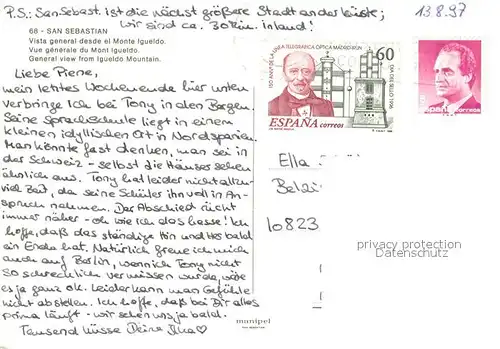 P.S.: San Sebast. ist die nächst größere Stadt an der Küste;
wir sind ca. 30 km. inland!
13.8.97
68 - SAN SEBASTIAN
Vista general desde el Monte Igueldo.
Vue générale du Mont Igueldo.
General view from Igueldo Mountain.
Liebe Piene,
mein letztes Wochenende hier unten
verbringe ich bei Tony in den Bergen.
Seine Sprachschule liegt in einem
kleinen idyllischen Ort in Nordspanien.
Man könnte fast denken, man sei in
der Schweiz - selbst die Häuser sehen
ähnlich aus. Tony hat leider nicht allzu-
viel Zeit, da seine Schüler ihn voll in An-
spruch nehmen. Der Abschied rückt
immer näher - oh wie ich das hasse! Ich
hoffe, daß das ständige Hin und Her bald
ein Ende hat. Natürlich freue ich mich
auch auf Berlin, wenn ich Tony nicht
so schrecklich vermissen würde, wäre
es ja ganz ok. Leider kann man Gefühle
nicht abstellen. Ich hoffe, daß bei Dir alles
prima läuft - wir sehen uns ja bald.
Tausend Küsse Deine Ilka
150 AÑOS DE LA LINEA TELEGRAFICA OPTICA MADRID-IRUN
60
DIA DEL SELLO 1996
ESPAÑA correos
Ella
10823
privacy protection
Datenschutz
manipel